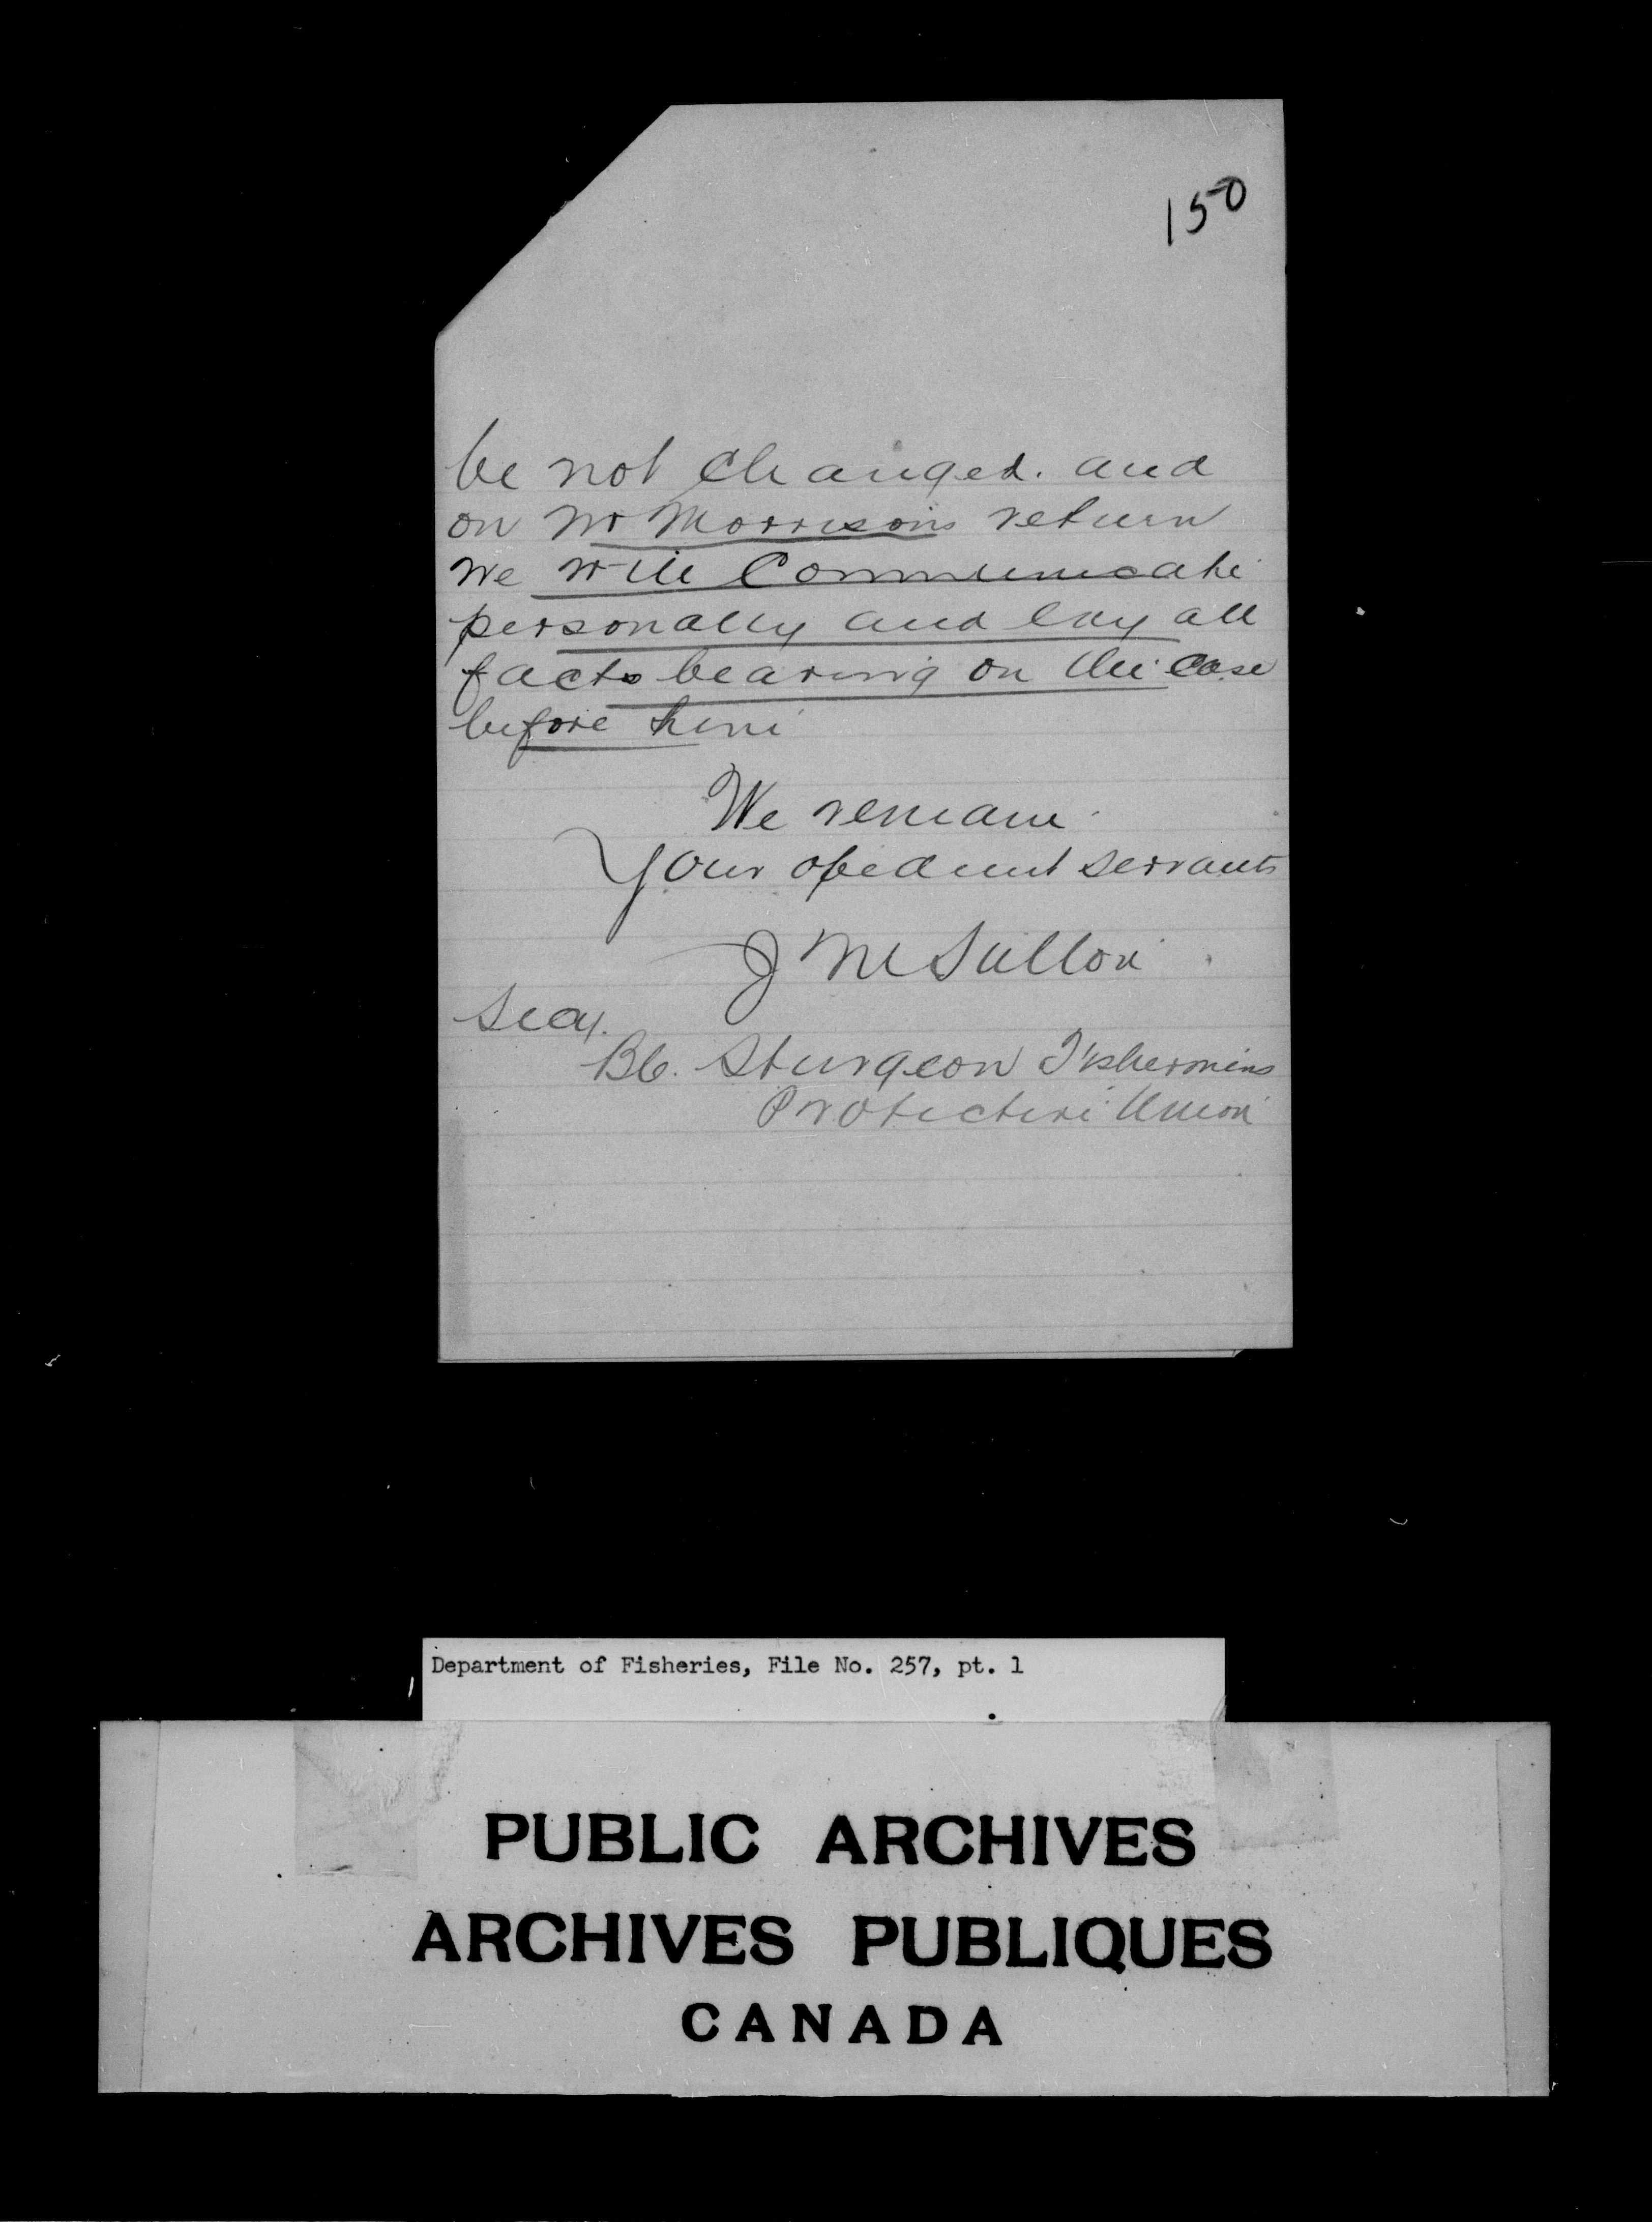 150
be not changed. and
on Mr Morrisons return
we will Communicate
personally and lay all
facts bearing on the case
before him
We remain
Your obedient servants
J M Sutton
Secy.
BC. Sturgeon Fishermens
Protective Union
Department of Fisheries, File No. 257, pt. 1
PUBLIC ARCHIVES
ARCHIVES PUBLIQUES
CANADA